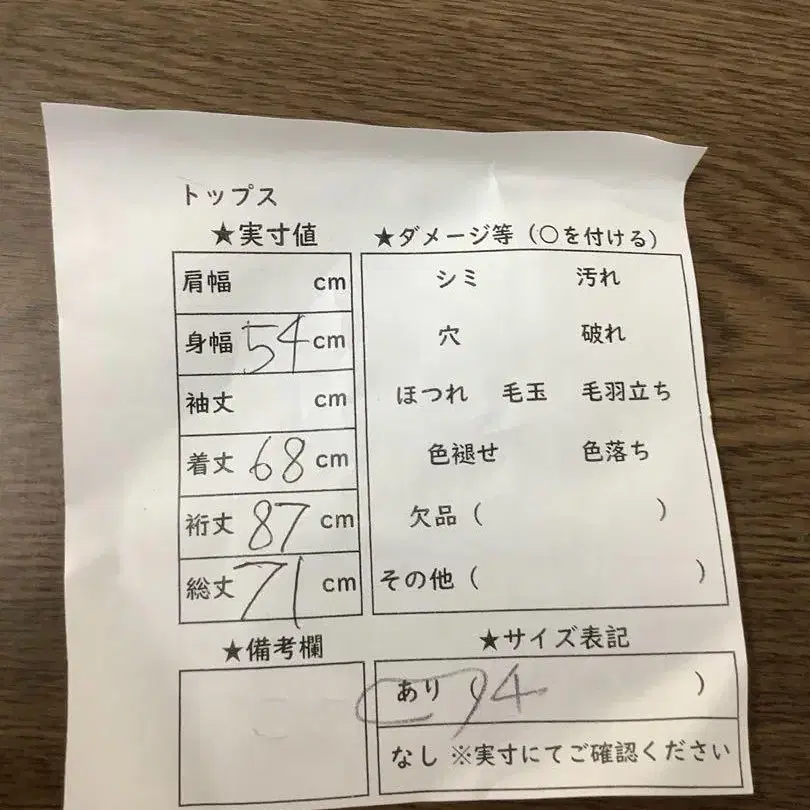 トップス
★実寸値
肩幅 cm
身幅 54 cm
袖丈 cm
着丈 68 cm
裄丈 87 cm
総丈 71 cm
★ダメージ等（○を付ける）
シミ 汚れ
穴 破れ
ほつれ 毛玉 毛羽立ち
色褪せ 色落ち
欠品（ ）
その他（ ）
★備考欄
★サイズ表記
あり（ 94 ）
なし ※実寸にてご確認ください